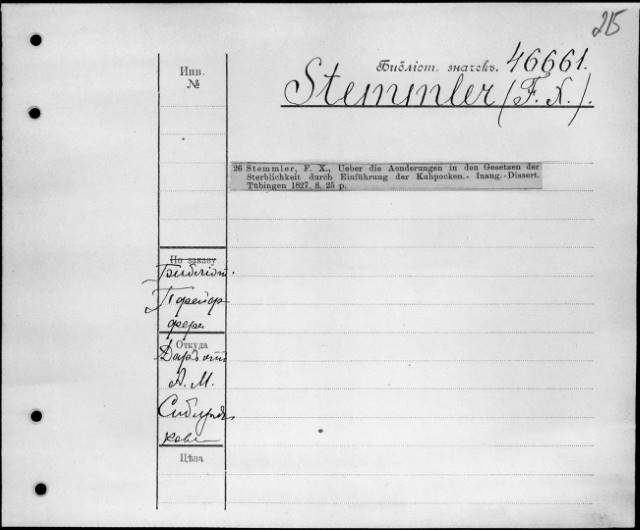 215
Инв. №
Библіот. значекъ. 46661.
Stemmler (F. X.).
26 Stemmler, F. X., Ueber die Aenderungen in den Gesetzen der
Sterblichkeit durch Einführung der Kuhpocken.- Inaug.-Dissert.
Tübingen 1827. 8. 25 p.
По заказу
Библіот.
Откуда
А. М.
Цѣна